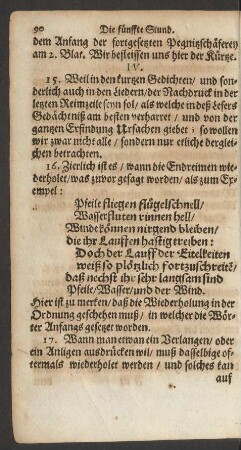 90 Die fünffte Stund.
dem Anfang der fortgesetzten Pegnitzschäferey
am 2. Blat. Wir befleissen uns hier der Kürtze.
IV.
15. Weil in den kurtzen Gedichten / und son-
derlich auch in den Liedern / der Nachdruck in der
letzten Reimzeile seyn sol / als welche in deß Lesers
Gedächtniß am besten verharret / und von der
gantzen Erfindung Ursachen giebet; so wollen
wir zwar nicht alle / sondern nur etliche derglei-
chen betrachten.
16. Zierlich ist es / wann die Endreimen wie-
derholet / was zuvor gesagt worden / als zum Ex-
empel:
Pfeile fliegen flügelschnell /
Wasserfluten rinnen hell /
Winde können nirgend bleiben /
die ihr Lauffen hastig treiben:
Doch der Lauff der Eitelkeiten
weiß so plötzlich fortzuschreitē /
daß nechst ihr sehr langsam sind
Pfeile / Wasser / und der Wind.
Hier ist zu merken / daß die Wiederholung in der
Ordnung geschehen muß / in welcher die Wör-
ter Anfangs gesetzet worden.
17. Wann man etwan ein Verlangen / oder
ein Anligen ausdrücken wil / muß dasselbige of-
termals wiederholet werden / und solches kan
auf